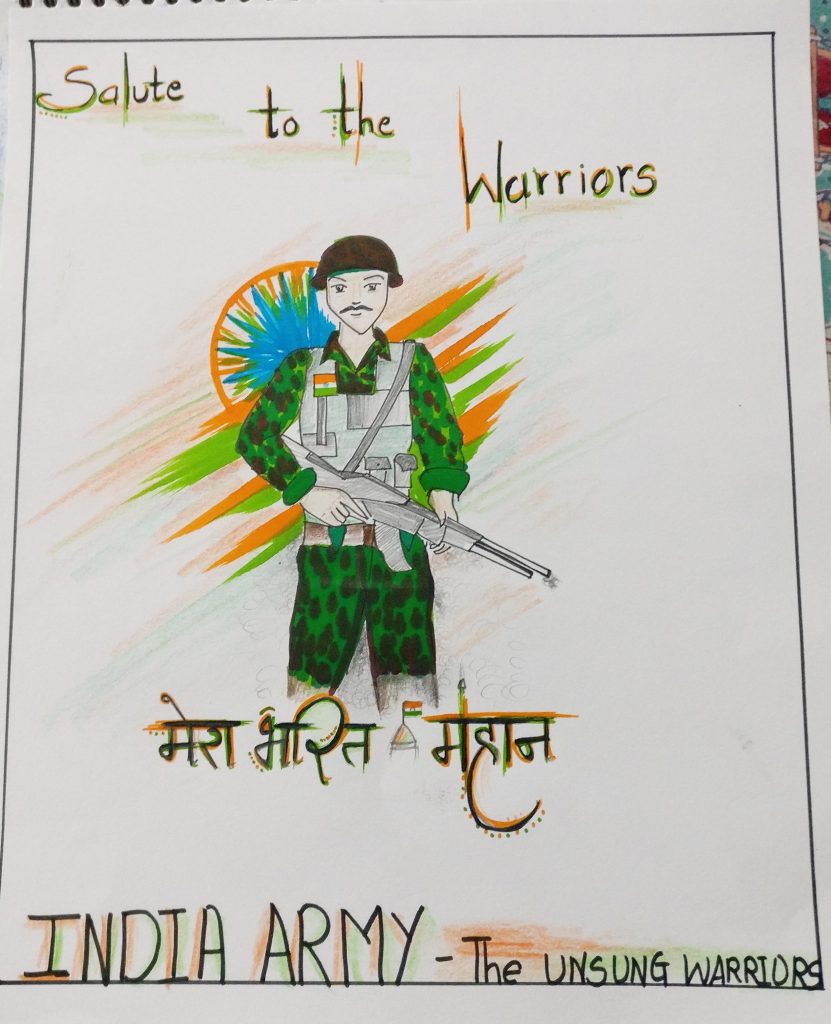 Salute to the Warriors
मेरा भारत महान
INDIA ARMY - The UNSUNG WARRIORS